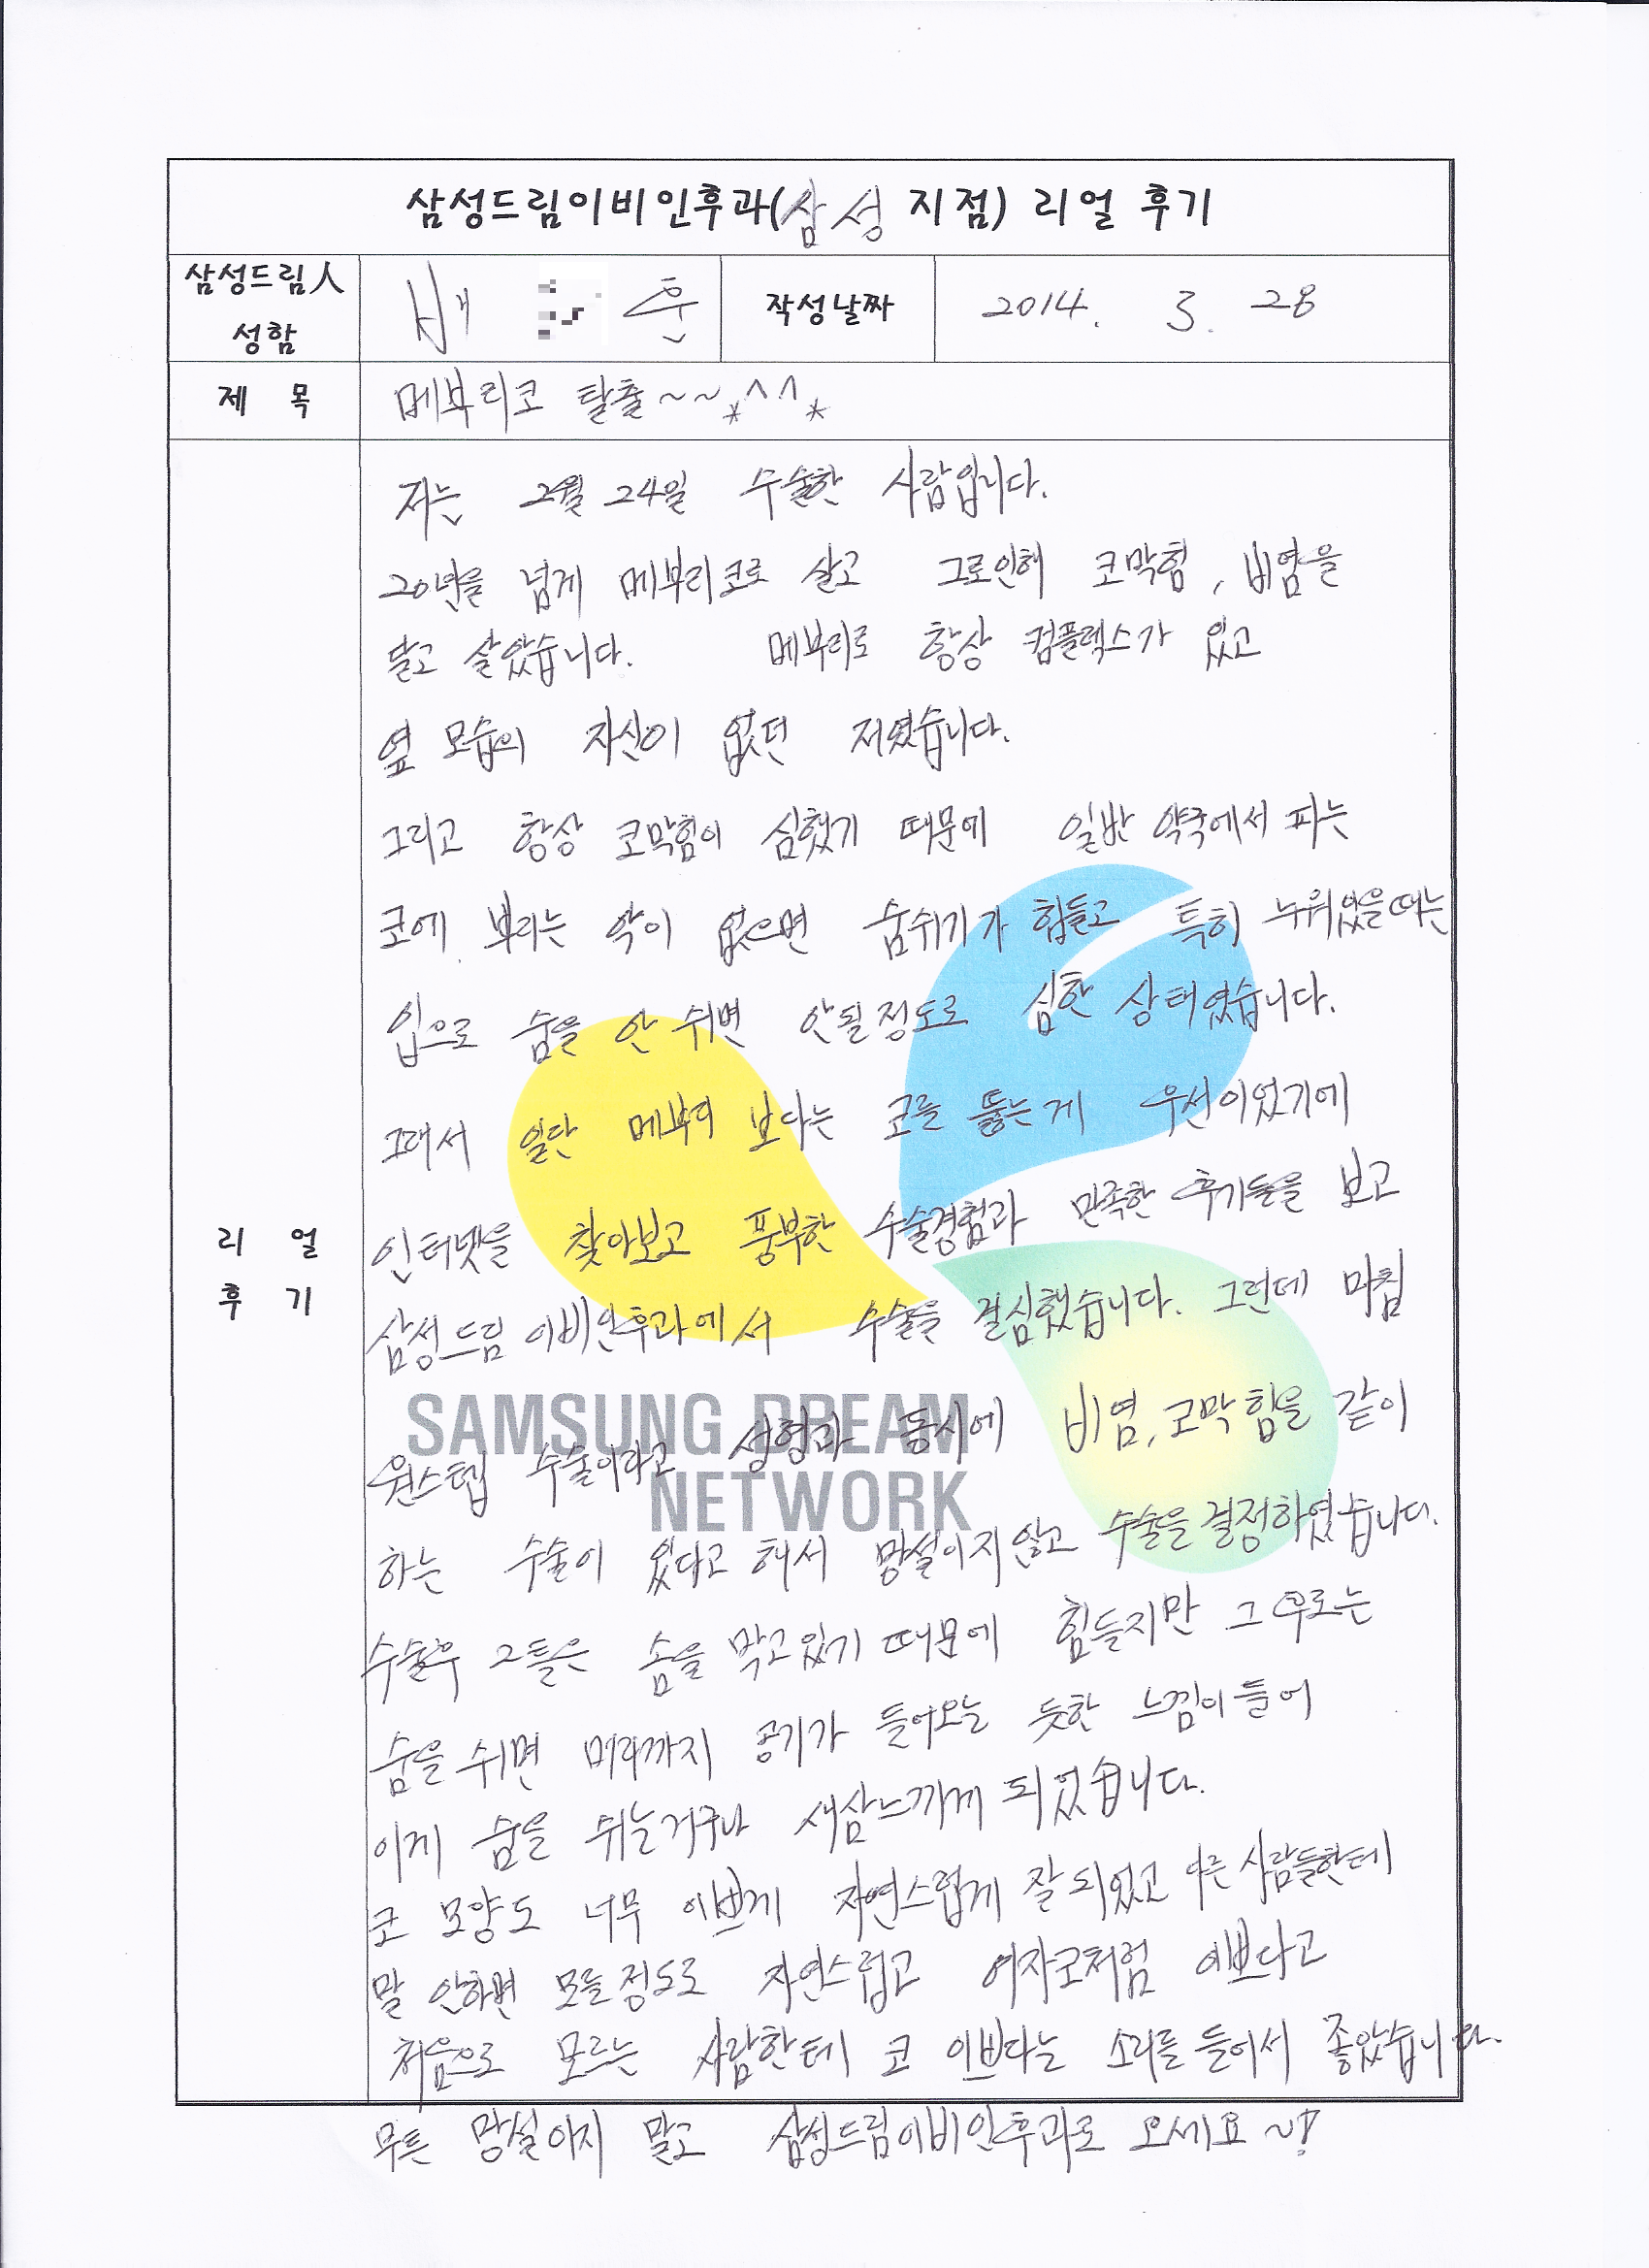 삼성드림이비인후과(삼성 지점) 리얼 후기
삼성드림人 성함
배 훈
작성날짜
2014. 3. 28
제 목
메부리코 탈출~~*^^*
저는 2월 24일 수술한 사람입니다.
20년을 넘게 메부리코로 살고 그로인해 코막힘, 비염을
달고 살았습니다. 메부리로 항상 컴플렉스가 있고
옆 모습의 자신이 없던 저였습니다.
그리고 항상 코막힘이 심했기 때문에 일반 약국에서 파는
코에 뿌리는 약이 없으면 숨쉬기가 힘들고 특히 누워있을때는
입으로 숨을 안 쉬면 안될정도로 심한 상태였습니다.
그래서 일단 메부리 보다는 코를 뚫는게 우선이었기에
인터넷을 찾아보고 풍부한 수술경험과 만족한 후기들을 보고
삼성드림 이비인후과에서 수술을 결심했습니다. 그런데 마침
원스텝 수술이라고 성형과 동시에 비염, 코막힘을 같이
하는 수술이 있다고 해서 망설이지않고 수술을 결정하였습니다.
수술후 2틀은 솜을 막고있기 때문에 힘들지만 그 후로는
숨을 쉬면 머리까지 공기가 들어오는 듯한 느낌이 들어
이게 숨을 쉬는거구나 새삼느끼게 되었습니다.
코 모양도 너무 이쁘게 자연스럽게 잘되었고 다른 사람들한테
말 안하면 모를정도로 자연스럽고 여자코처럼 이쁘다고
처음으로 모르는 사람한테 코 이쁘다는 소리를 들어서 좋았습니다.
무튼 망설이지 말고 삼성드림이비인후과로 오세요~!
리 얼
후 기
SAMSUNG DREAM
NETWORK